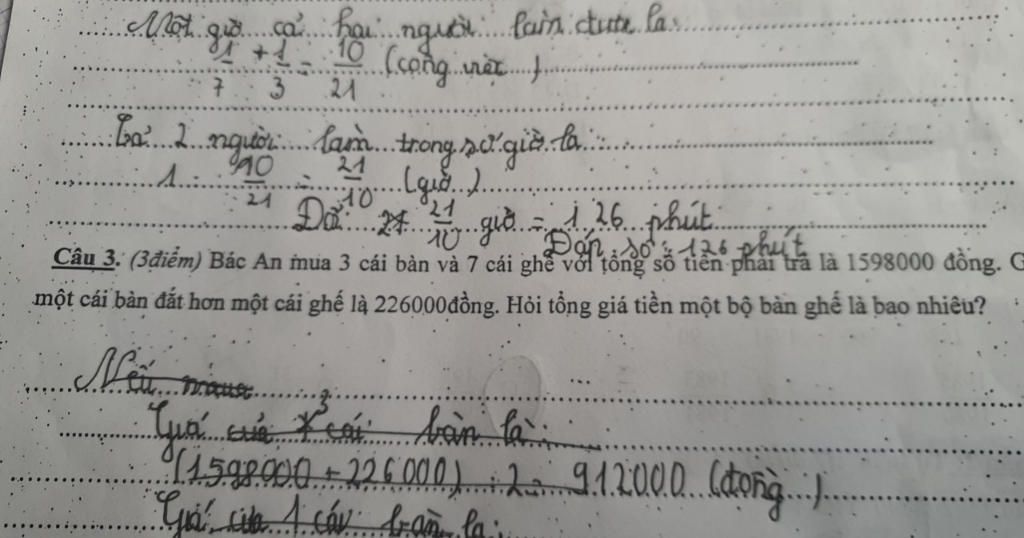 Một giờ cả hai người làm được là:
1/7 + 1/3 = 10/21 (công việc)
Cả 2 người làm trong số giờ là:
1 : 10/21 = 21/10 (giờ)
Đổi: 21/10 giờ = 126 phút
Đáp số: 126 phút
Câu 3. (3điểm) Bác An mua 3 cái bàn và 7 cái ghế với tổng số tiền phải trả là 1598000 đồng. G
một cái bàn đắt hơn một cái ghế là 226000đồng. Hỏi tổng giá tiền một bộ bàn ghế là bao nhiêu?
Nếu mua
Giá của 3 cái bàn là:
(1598000 + 226000) : 2 = 912000 (đồng)
Giá của 1 cái bàn là: